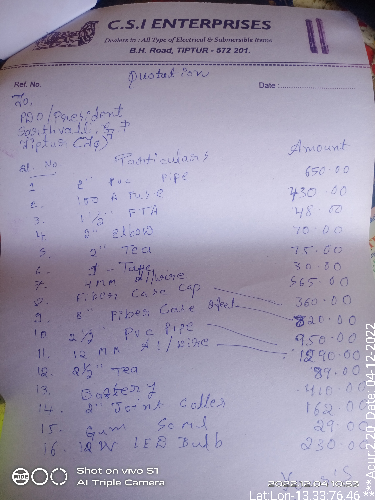 C.S.I ENTERPRISES
Dealers in : All Type of Electrical & Submersible Items
B.H. Road, TIPTUR - 572 201.
Ref. No. Date :
Quotation
To,
PDO/President
Tiptur (Tq)
Sl. No Particulars Amount
1 2" PVC PIPE 650-00
2. 100 A Fuse 430-00
3. 1 1/2" FTA 48-00
4. 2" Elbow 70-00
5. 2" Tea 75-00
6. Tape 30-00
7. 565-00
8. Fiber Case Cap 360-00
9. 8" Fiber Case 820-00
10. 2 1/2" PVC PIPE 950-00
11. 12 MM Al/wire 1290-00
12. 2 1/2" Tea 89-00
13. Battery 410-00
14. 2" Joint Coller 162-00
15. Gum 29-00
16. 12W LED Bulb 230-00
Shot on vivo S1
AI Triple Camera
2022.12.04 10:52
Lat:Lon-13.33:76.46
***Acur:2.20 Date:04-12-2022 ***